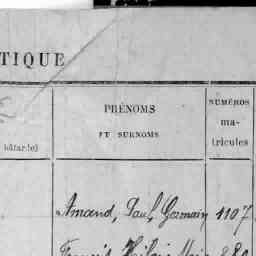 TIQUE
PRÉNOMS
ET SURNOMS
NUMÉROS
ma-
tricules
Amand, Paul, Germain 1107
François Hilaire